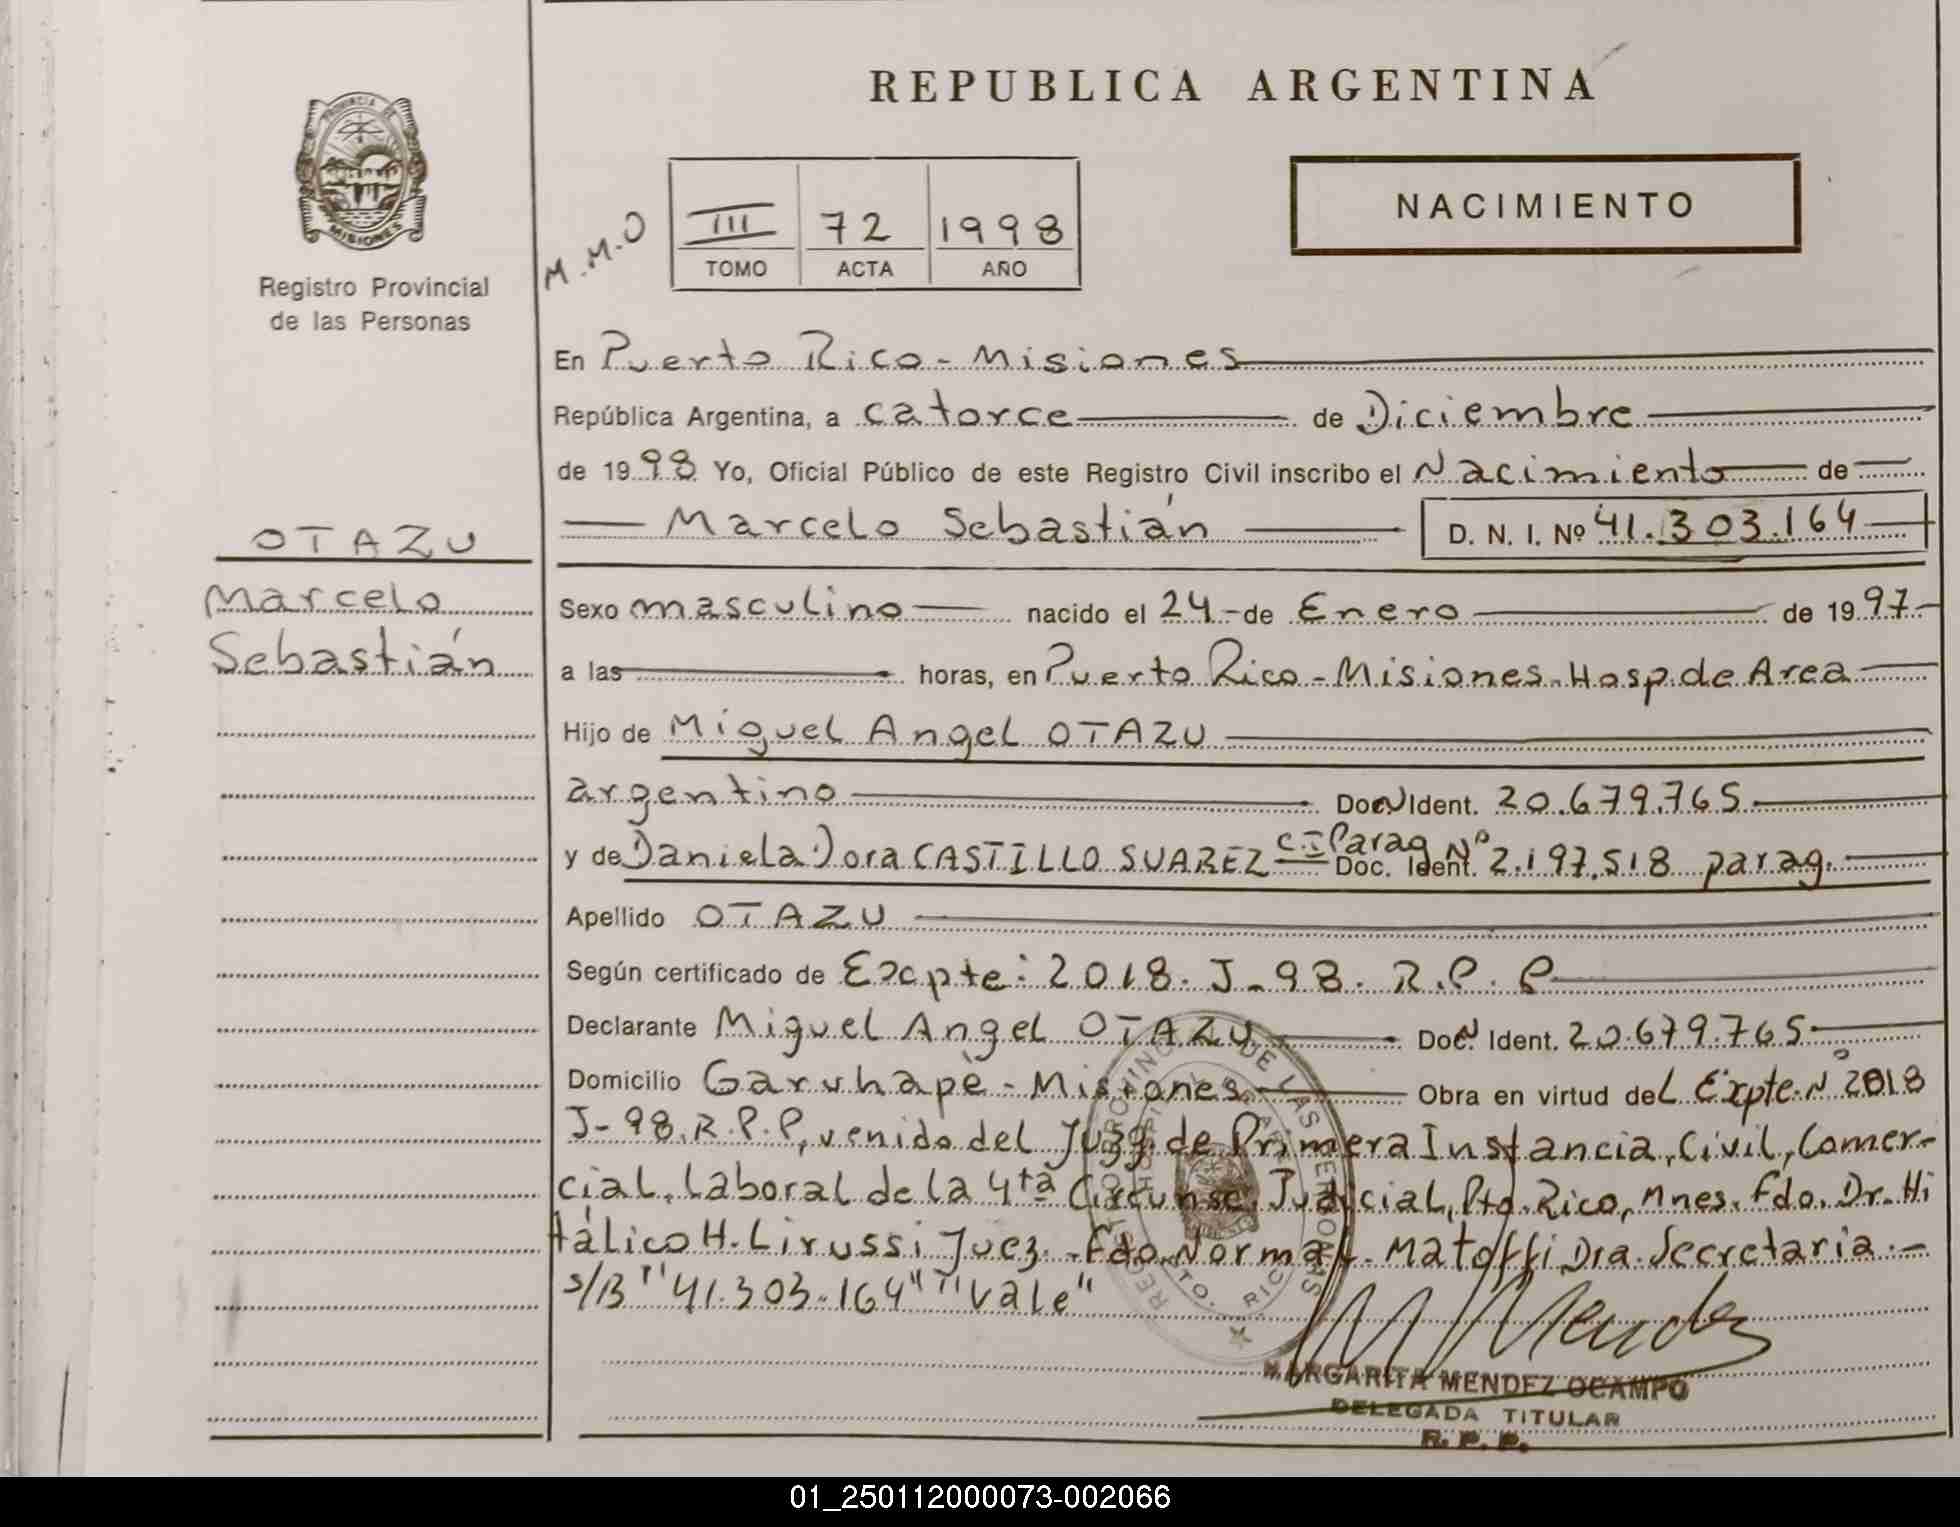 REPUBLICA ARGENTINA
PROVINCIA DE
MISIONES
Registro Provincial
de las Personas
M.M.O
III 72 1998
TOMO ACTA AÑO
NACIMIENTO
En Puerto Rico - Misiones
República Argentina, a catorce de Diciembre
de 1998 Yo, Oficial Público de este Registro Civil inscribo el Nacimiento de
Marcelo Sebastián D. N. I. Nº 41.303.164
OTAZU
Marcelo
Sebastián
Sexo masculino nacido el 24 - de Enero de 1997-
a las horas, en Puerto Rico - Misiones. Hosp. de Area
Hijo de Miguel Angel OTAZU
argentino Doc. N Ident. 20.679.765
y de Daniela Dora CASTILLO SUAREZ C.I Parag Nº Doc. Ident. 2.197.518 parag.
Apellido OTAZU
Según certificado de Excpte: 2018. J-98. R.P.P
Declarante Miguel Angel OTAZU Doc. N Ident. 20.679.765
Domicilio Garuhapè - Misiones Obra en virtud del Expte. Nº 2018
J-98.R.P.P, venido del Juzg. de Primera Instancia, Civil, Comer-
cial, laboral de la 4ta Circunsc. Judicial, Pto. Rico, Mnes. Fdo. Dr. Hi
tálico H. Lirussi Juez. Fdo. Norma L. Matoffi Dra. Secretaria.-
s/B "41.303.164" "vale"
REGISTRO PROVINCIAL DE LAS PERSONAS
PTO. RICO
M Mendez
MARGARITA MENDEZ OCAMPO
DELEGADA TITULAR
R. P. P.
01_250112000073-002066